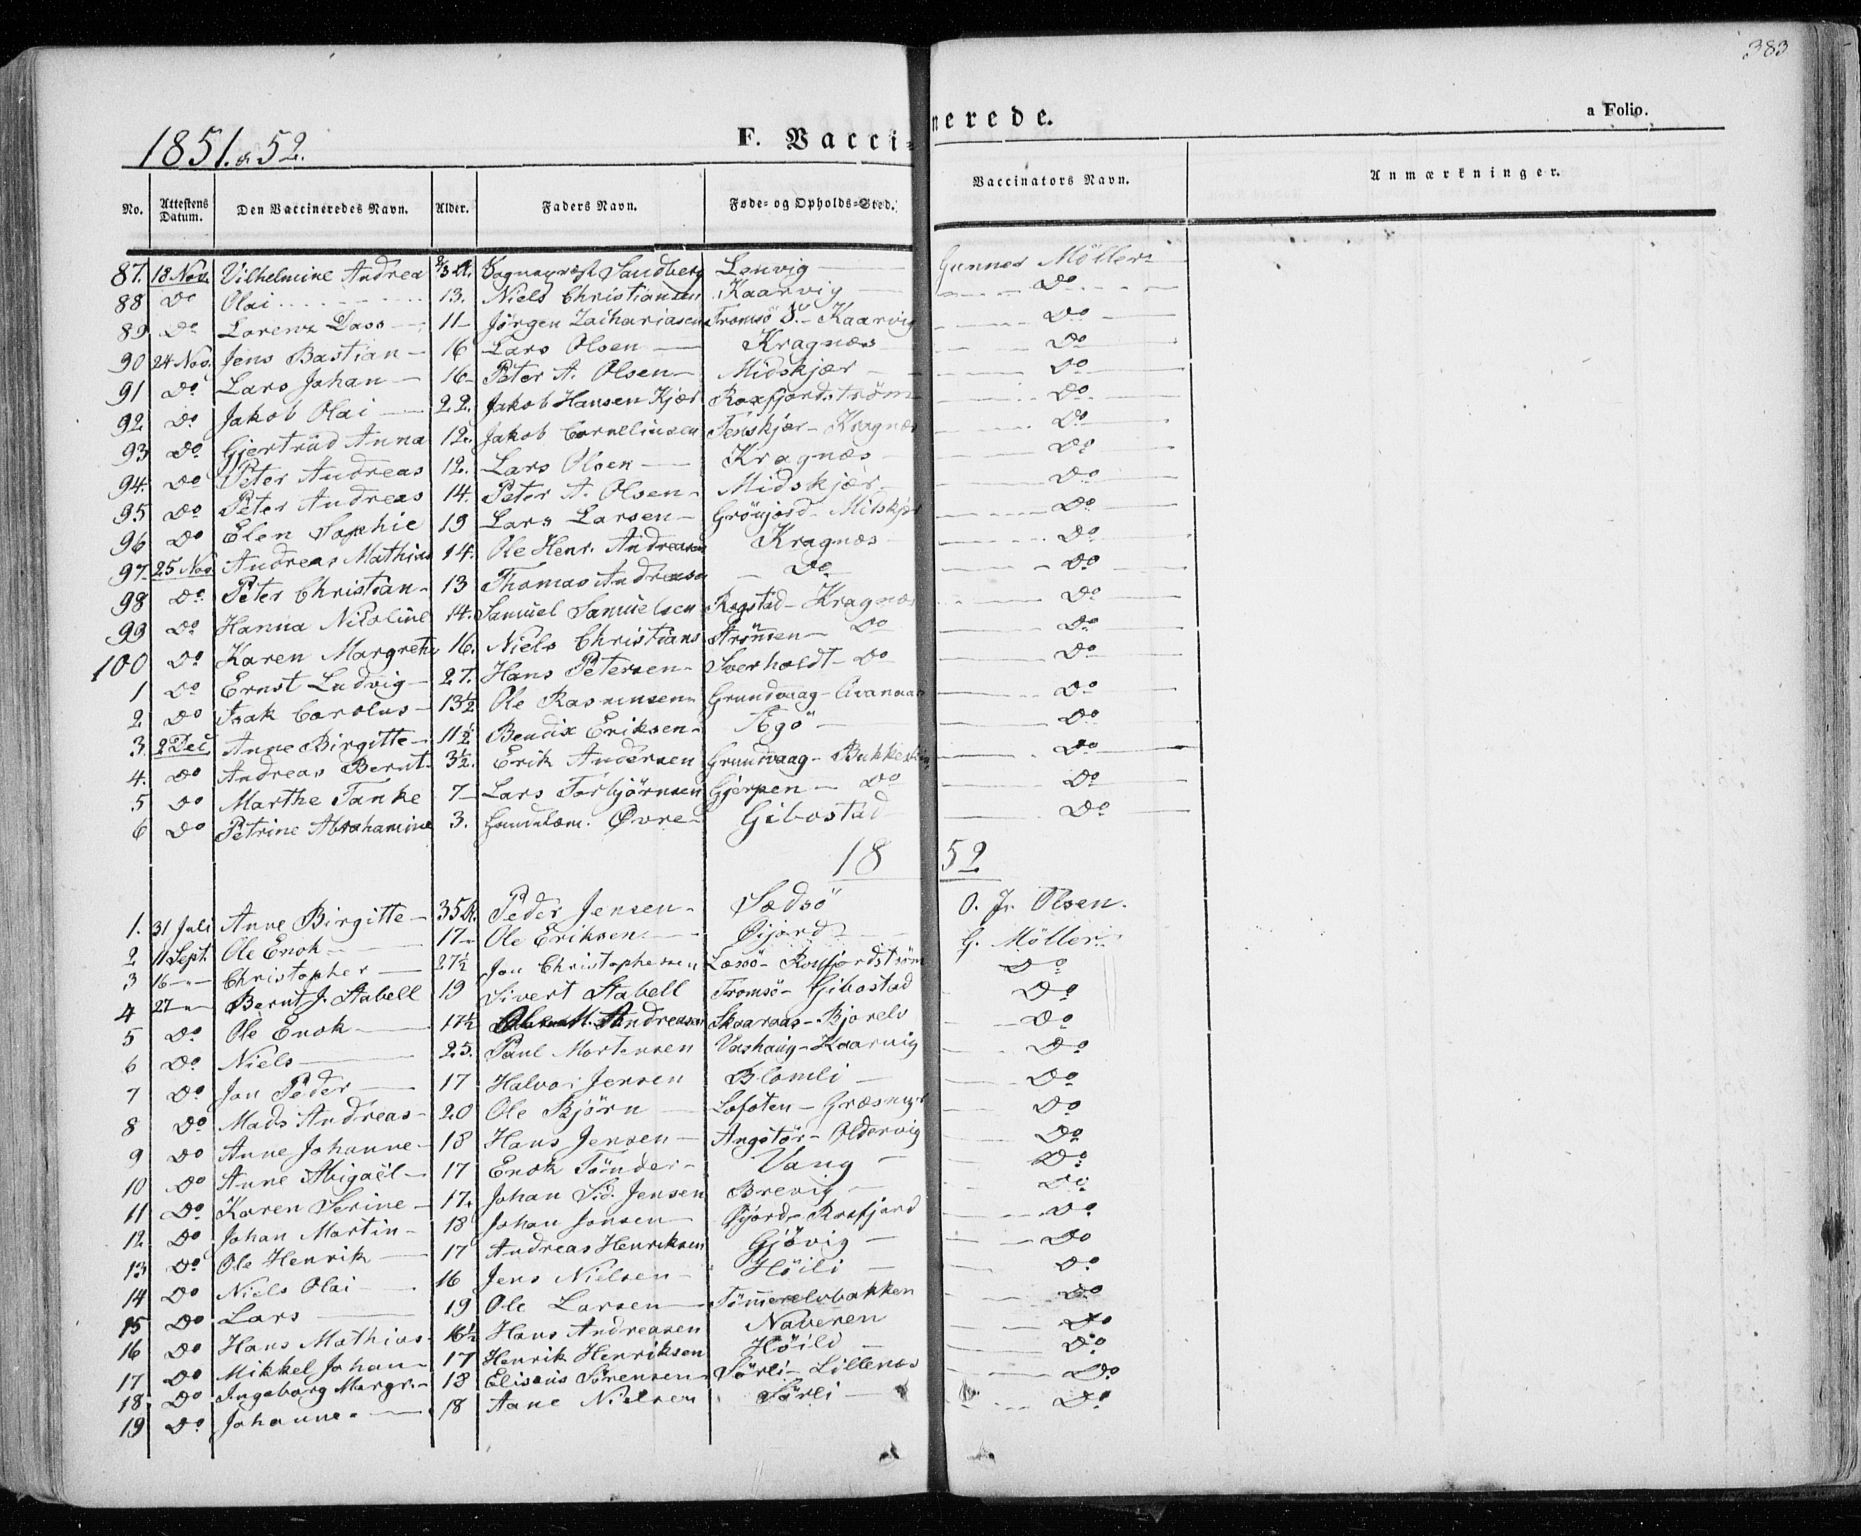 383
1851. & 52.
F. Vaccinerede.
a Folio.
No. Attestens Datum. Den Vaccineredes Navn. Alder. Faders Navn. Føde- og Opholds-Sted. Vaccinators Navn. Anmærkninger.
87. 18 Nov. Vilhelmine Andrea Sognepræst Sandberg Lenvig Gunner Möller
88 Do Olai 13. Niels Christiansen Kaarvig Do
89 Do Lorenz Dass 11 Jörgen Zachariasen Tromsö Kaarvig Do
90 24 Nov. Jens Bastian 16 Lars Olsen Kragnæs Do
91 Do Lars Johan 16 Peter A. Olsen Midskjær Do
92 Do Jakob Olai 22. Jakob Hansen Kjær Roxfjordström Do
93 Do Gjertrud Anna 12. Jakob Corneliusen Tenskjær - Kragnæs Do
94. Do Peter Andreas 12. Lars Olsen Kragnæs Do
95 Do Peter Andreas 14. Peter A. Olsen Midskjær Do
96 Do Elen Sophie 19 Lars Larsen Grönjord - Midskjær Do
97 25 Nov Andreas Mathias 14. Ole Henr. Andreasen Kragnæs Do
98 Do Peter Christian 13 Thomas Andreasen Do Do
99 Do Hanna Nicoline 14. Samuel Samuelsen Rogstad - Kragnæs Do
100 Do Karen Margrethe 16. Niels Christians Strömsen - Do Do
1 Do Ernst Ludvig 27. Hans Petersen Sverholdt - Do Do
2 Do Isak Carolus 13½ Ole Rasmusen Grundvaag Do
3. 2 Dec Anne Birgitte 11½ Bendix Eriksen Do
4. Do Andreas Bernt 3½. Erik Andersen Grundvaag - Do
5 Do Marthe Tanke 7 Lars Torbjörnsen Gjerpen - Do Do
6 Do Petrine Abrahamine 3. Øvre Gibostad Do
1852
1. 31 Juli Anne Birgitte 35 A. Peder Jensen Sædsö O. J. Olsen.
2 11 Sept. Ole Enok 17 Ole Eriksen Öijord G. Möller
3 16 - " - Christopher 27½ Jon Christophersen Læssö - Roxfjordström Do
4 27 - " - Bernt J. Stabell 19 Sivert Stabell Tromsö - Gibostad Do
5 Do Ole Enok 17½ Andreasen Skaaraas - Bjorelv Do
6 Do Niels 25. Paul Mortensen Vashaug - Kaarvig Do
7 Do Jon Peder 17 Halvor Jensen Blomli Do
8 Do Mads Andreas 20 Ole Björn Lofoten - Do
9 Do Anne Johanne 18 Hans Jensen Angstör - Oldervig Do
10 Do Anne Abigaël 17 Enok Tönder Vang Do
11 Do Karen Serine 17. Johan Sid. Jensen Brevig Do
12. Do Johan Martin 18 Johan Jensen Öijord - Roxfjord Do
13 Do Ole Henrik 17 Andreas Henriksen Gjövig Do
14 Do Niels Olai 16 Jens Nielsen Höili Do
15 Do Lars 19 Ole Larsen Tömmerelvbakken Do
16 Do Hans Mathias 16½ Hans Andreasen Naveren Do
17 Do Mikkel Johan 17 Henrik Henriksen Höili Do
18. Do Ingeborg Margr. 18 Elisæus Sörensen Sörli - Lillenæs Do
19 Do Johanne 18 Aane Nielsen Sörli Do